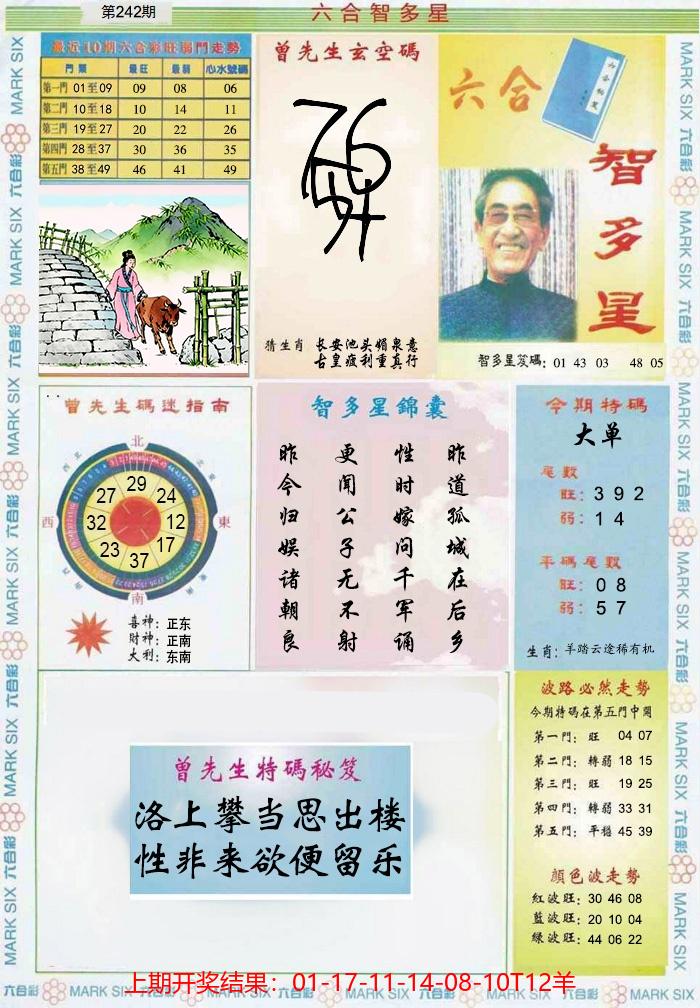 第242期
六合智多星
最近10期六合彩旺弱門走勢
門類 最旺 最弱 心水號碼
第一門 01至09 09 08 06
第二門 10至18 10 14 11
第三門 19至27 20 22 26
第四門 28至37 30 36 35
第五門 38至49 46 41 49
曾先生玄空碼
猜生肖
长安池头媚泉意
古皇疲利重真行
六合
六合秘笈
智多星
智多星笈碼: 01 43 03 48 05
曾先生碼迷指南
北
東
南
西
西北
東北
29
24
12
17
37
23
32
27
喜神: 正东
财神: 正南
大利: 东南
智多星錦囊
昨道孤城在后乡
性时嫁问千军诵
更闻公子无不射
昨今归娱诸朝良
今期特碼
大单
尾數
旺: 3 9 2
弱: 1 4
平碼尾數
旺: 0 8
弱: 5 7
生肖: 羊踏云途稀有机
曾先生特碼秘笈
洛上攀当思出楼
性非来欲便留乐
波路必然走勢
今期特碼在第五門中開
第一門: 旺 04 07
第二門: 轉弱 18 15
第三門: 旺 19 25
第四門: 轉弱 33 31
第五門: 平穩 45 39
顏色波走勢
紅波旺: 30 46 08
藍波旺: 20 10 04
綠波旺: 44 06 22
上期开奖结果: 01-17-11-14-08-10T12羊
MARK SIX 六合彩